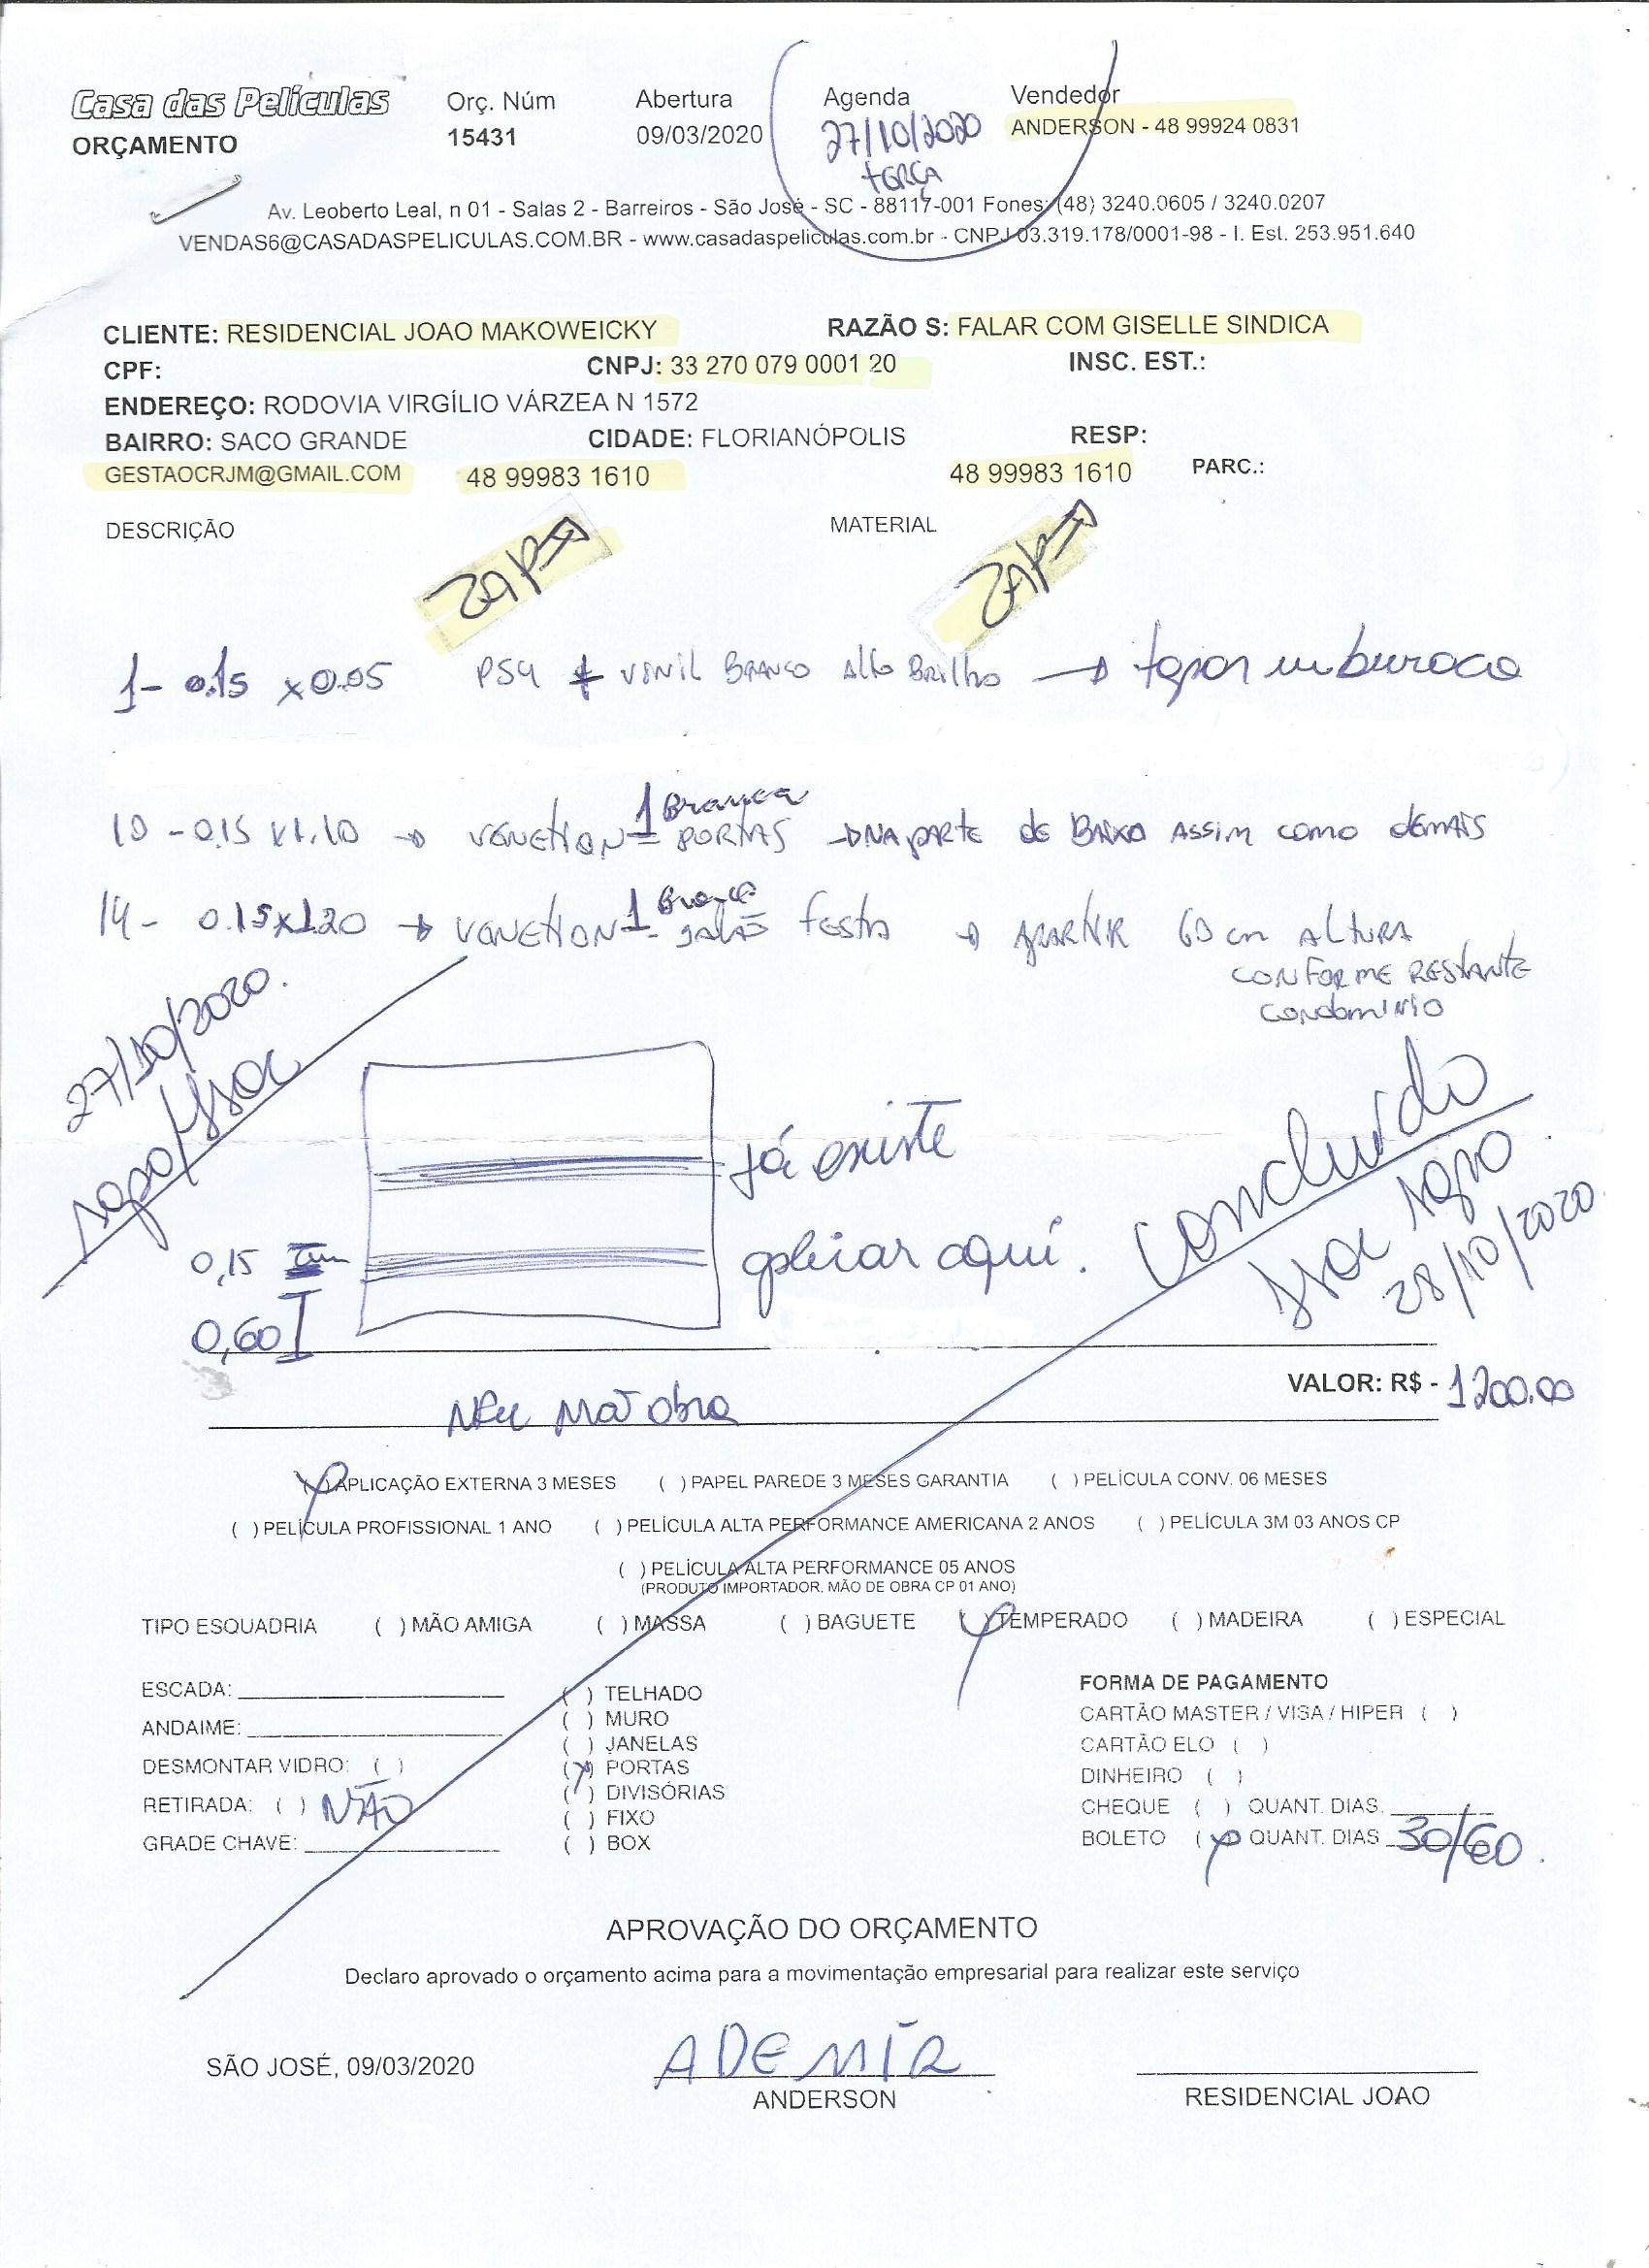 Casa das Películas
ORÇAMENTO
Orç. Núm
15431
Abertura
09/03/2020
Agenda
27/10/2020
terça
Vendedor
ANDERSON - 48 99924 0831
Av. Leoberto Leal, n 01 - Salas 2 - Barreiros - São José - SC - 88117-001 Fones: (48) 3240.0605 / 3240.0207
VENDAS6@CASADASPELICULAS.COM.BR - www.casadaspeliculas.com.br - CNPJ 03.319.178/0001-98 - I. Est. 253.951.640
CLIENTE: RESIDENCIAL JOAO MAKOWEICKY RAZÃO S: FALAR COM GISELLE SINDICA
CPF: CNPJ: 33 270 079 0001 20 INSC. EST.:
ENDEREÇO: RODOVIA VIRGÍLIO VÁRZEA N 1572
BAIRRO: SACO GRANDE CIDADE: FLORIANÓPOLIS RESP:
GESTAOCRJM@GMAIL.COM 48 99983 1610 48 99983 1610 PARC.:
DESCRIÇÃO MATERIAL
ZAP ZAP
1 - 0.15 x 0.05 PS4 + VINIL BRANCO Alto Brilho → tapar um buraco
1 Branca
10 - 0.15 x 1.10 → VENETION PORTAS → NA PARTE DE BAIXO ASSIM COMO DEMAIS
1 Branca
14 - 0.15 x 1.20 → VENETION festa → APARTIR 60 cm ALTURA
CONFORME RESTANTE
CONDOMINIO
27/10/2020.
Já existe
aqui.
0,15
0,60
Concluído
28/10/2020
VALOR: R$ - 1200.00
obra
( ) APLICAÇÃO EXTERNA 3 MESES ( ) PAPEL PAREDE 3 MESES GARANTIA ( ) PELÍCULA CONV. 06 MESES
( ) PELÍCULA PROFISSIONAL 1 ANO ( ) PELÍCULA ALTA PERFORMANCE AMERICANA 2 ANOS ( ) PELÍCULA 3M 03 ANOS CP
( ) PELÍCULA ALTA PERFORMANCE 05 ANOS
(PRODUTO IMPORTADOR. MÃO DE OBRA CP 01 ANO)
TIPO ESQUADRIA ( ) MÃO AMIGA ( ) MASSA ( ) BAGUETE ( ) TEMPERADO ( ) MADEIRA ( ) ESPECIAL
ESCADA:
ANDAIME:
DESMONTAR VIDRO: ( )
RETIRADA: ( ) NÃO
GRADE CHAVE:
( ) TELHADO
( ) MURO
( ) JANELAS
(x) PORTAS
( ) DIVISÓRIAS
( ) FIXO
( ) BOX
FORMA DE PAGAMENTO
CARTÃO MASTER / VISA / HIPER ( )
CARTÃO ELO ( )
DINHEIRO ( )
CHEQUE ( ) QUANT. DIAS.
BOLETO (x) QUANT. DIAS 30/60.
APROVAÇÃO DO ORÇAMENTO
Declaro aprovado o orçamento acima para a movimentação empresarial para realizar este serviço
SÃO JOSÉ, 09/03/2020
ADEMIR
ANDERSON
RESIDENCIAL JOAO